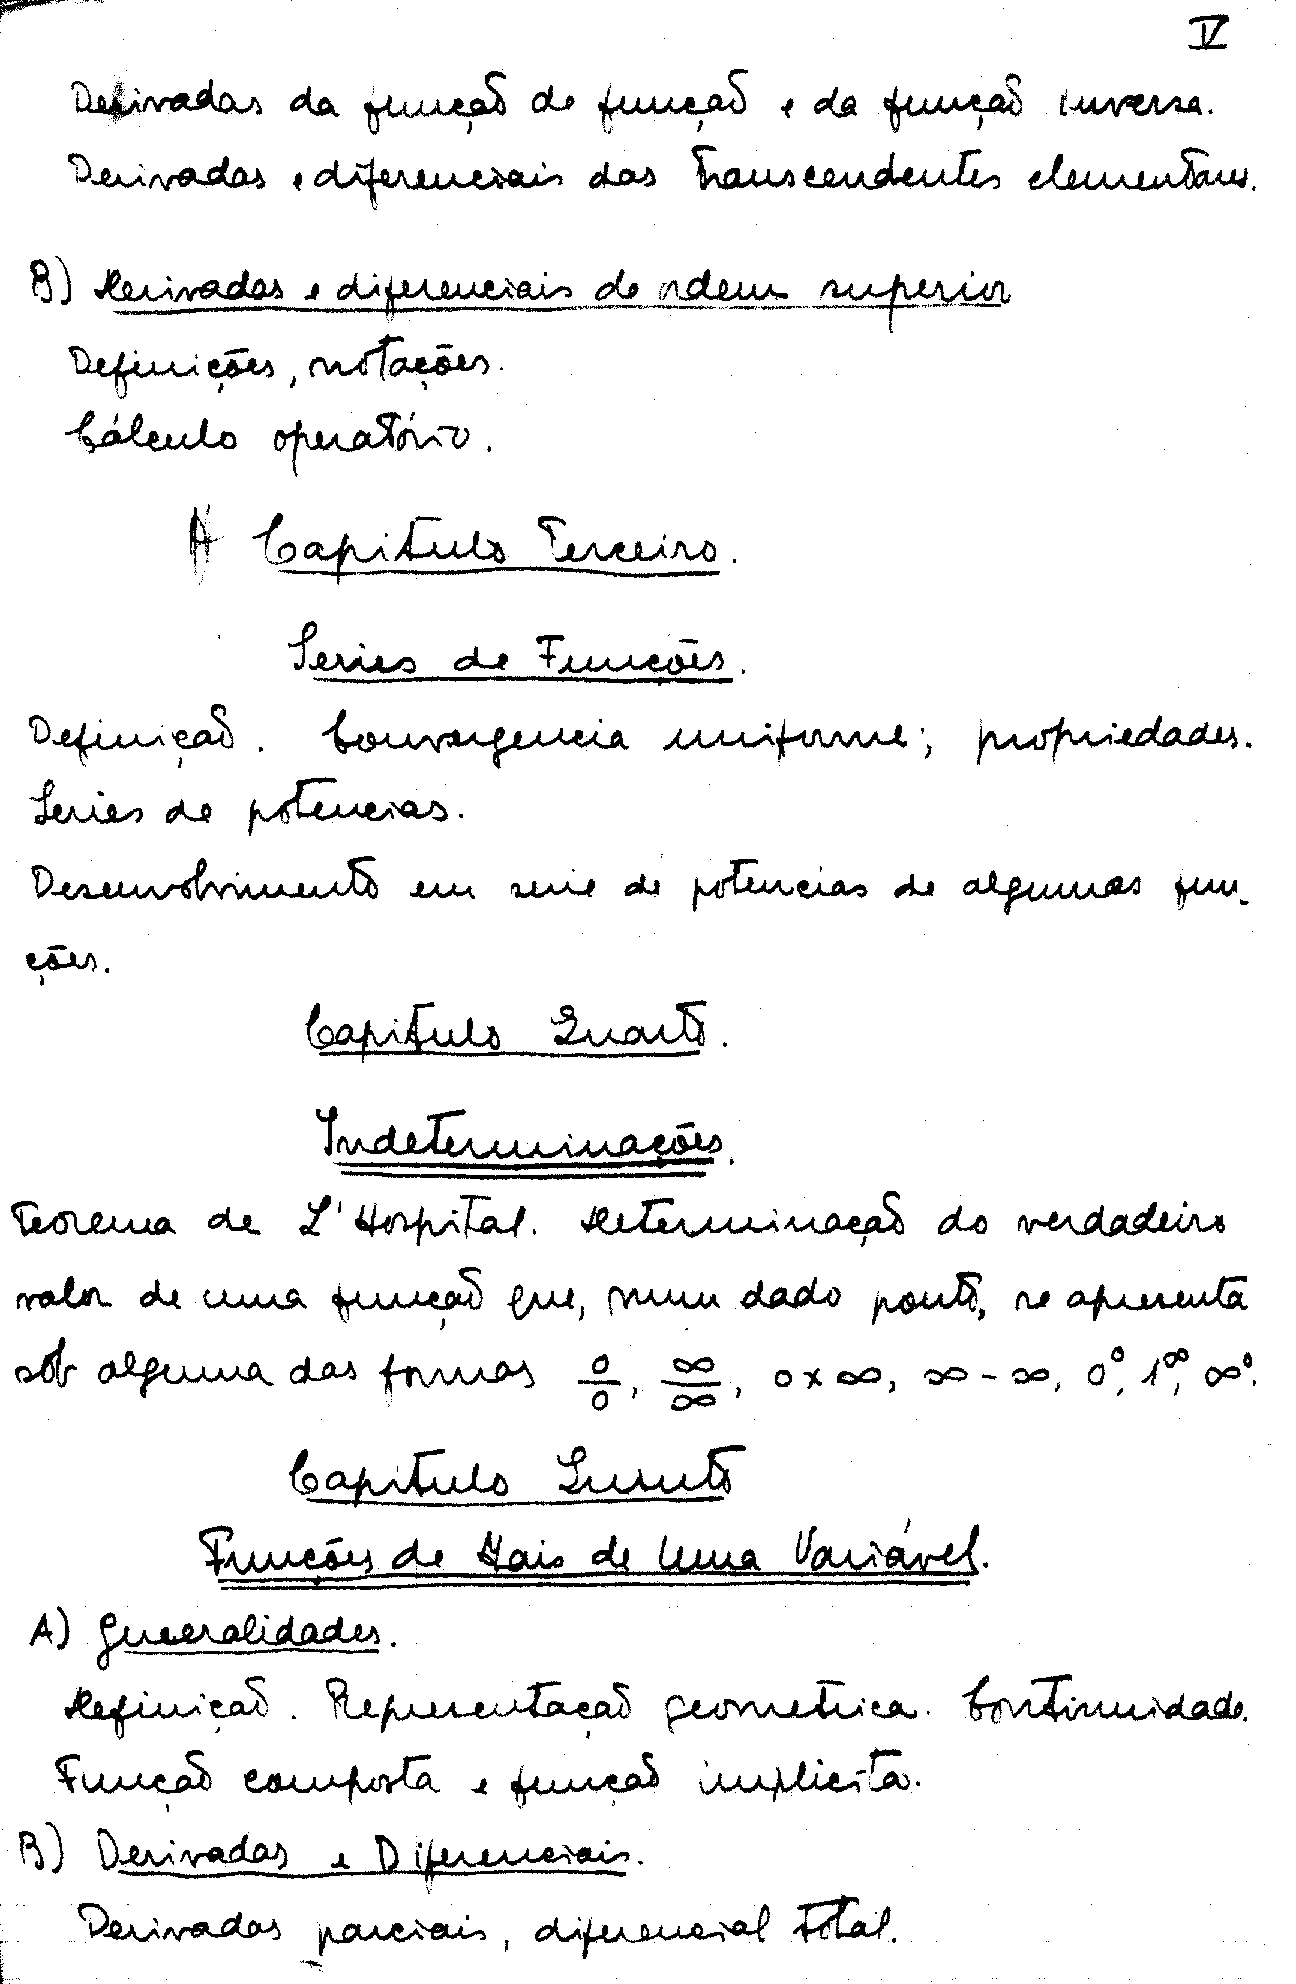 IV
Derivadas da função de função e da função inversa.
Derivadas e diferenciais das transcendentes elementares.
B) Derivadas e diferenciais de ordem superior
Definições, notações.
Cálculo operatório.
Capitulo Terceiro.
Series de Funções.
Definição. Convergencia uniforme; propriedades.
Series de potencias.
Desenvolvimento em serie de potencias de algumas fun-
ções.
Capitulo Quarto.
Indeterminações.
Teorema de L'Hospital. Determinação do verdadeiro
valor de uma função que, num dado ponto, se apresenta
sob alguma das formas 0/0, ∞/∞, 0×∞, ∞-∞, 0⁰, 1^∞, ∞⁰.
Capitulo Quinto
Funções de Mais de Uma Variável.
A) Generalidades.
Definição. Representação geometrica. Continuidade.
Função composta e função implicita.
B) Derivadas e Diferenciais.
Derivadas parciais, diferencial total.